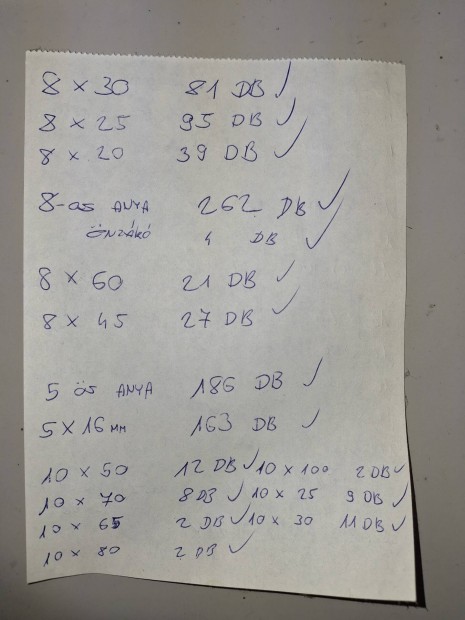 8 x 30 81 DB ✓
8 x 25 95 DB ✓
8 x 20 39 DB ✓
8-as ANYA 262 DB ✓
ÖNZÁRÓ 4 DB ✓
8 x 60 21 DB ✓
8 x 45 27 DB ✓
5 ös ANYA 186 DB ✓
5 x 16 MM 163 DB ✓
10 x 50 12 DB ✓ 10 x 100 2 DB ✓
10 x 70 8 DB ✓ 10 x 25 9 DB ✓
10 x 65 2 DB ✓ 10 x 30 11 DB ✓
10 x 80 2 DB ✓